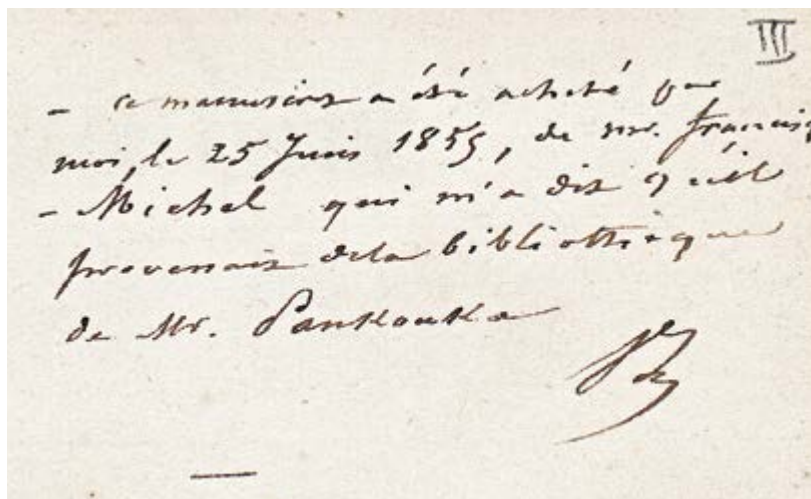 III
- ce manuscrit a été acheté par
moi, le 25 Juin 1855, de mr. francisque
- Michel qui m'a dit qu'il
provenait de la bibliothèque
de Mr. Pankouke